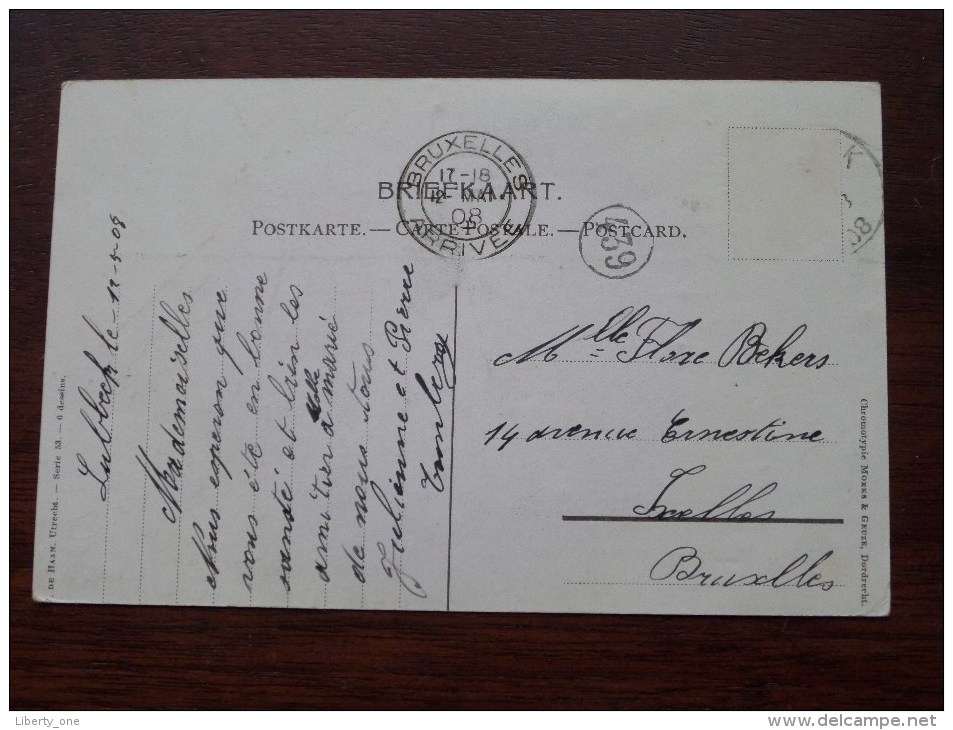 BRUXELLES
17-18
12 MAI
08
ARRIVEE
K
8
08
BRIEFKAART.
POSTKARTE.—CARTE POSTALE.—POSTCARD.
439
Lubbeek le 12-5-08
Mademoiselles
Nous esperon que
vous éte en bonne
santé et bien les
de nous tous
Julienne et Pierre
Mlle Flore Bekers
14 avenue Ernestine
Ixelles
Bruxelles
DE HAAN, Utrecht. — Serie 53. — 6 dessins.
Chromotypie MORKS & GEUZE, Dordrecht.
Liberty_one
www.delcampe.net